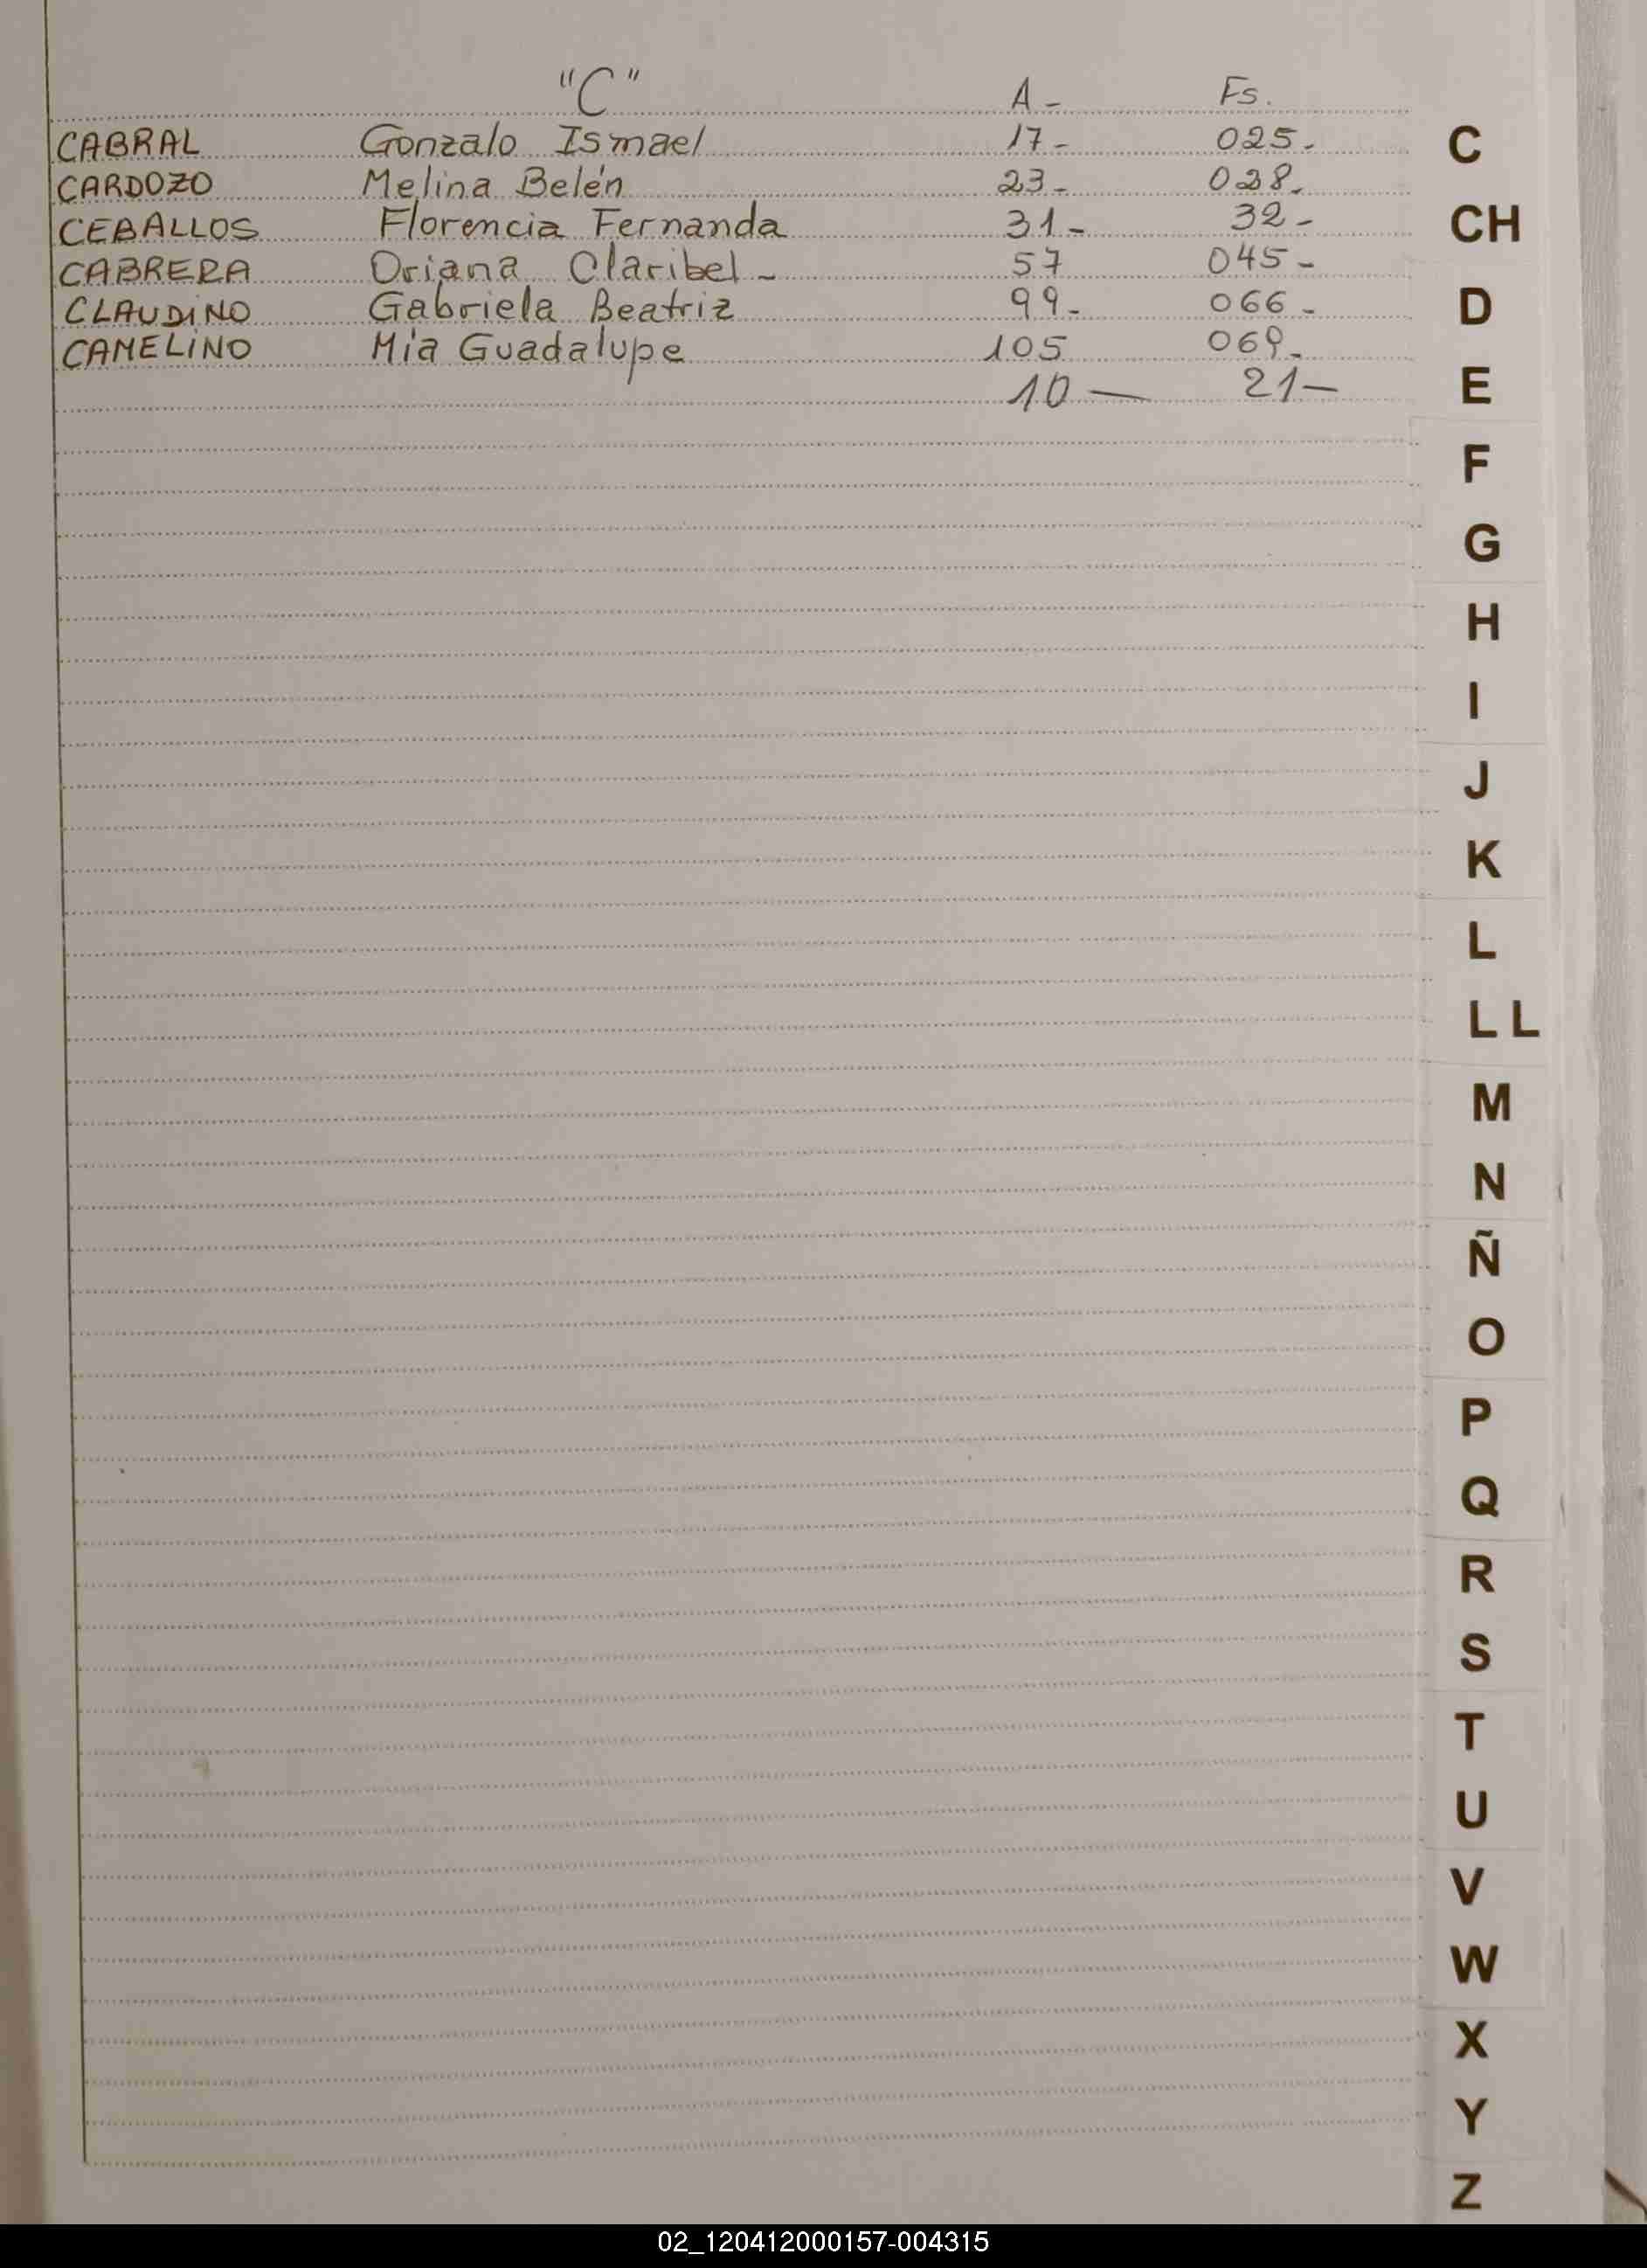 "C" A - Fs.
CABRAL Gonzalo Ismael 17 - 025 -
CARDOZO Melina Belén 23 - 028 -
CEBALLOS Florencia Fernanda 31 - 32 -
CABRERA Oriana Claribel - 57 045 -
CLAUDINO Gabriela Beatriz 99 - 066 -
CAMELINO Mía Guadalupe 105 069 -
10 — 21 —
C
CH
D
E
F
G
H
I
J
K
L
LL
M
N
Ñ
O
P
Q
R
S
T
U
V
W
X
Y
Z
02_120412000157-004315